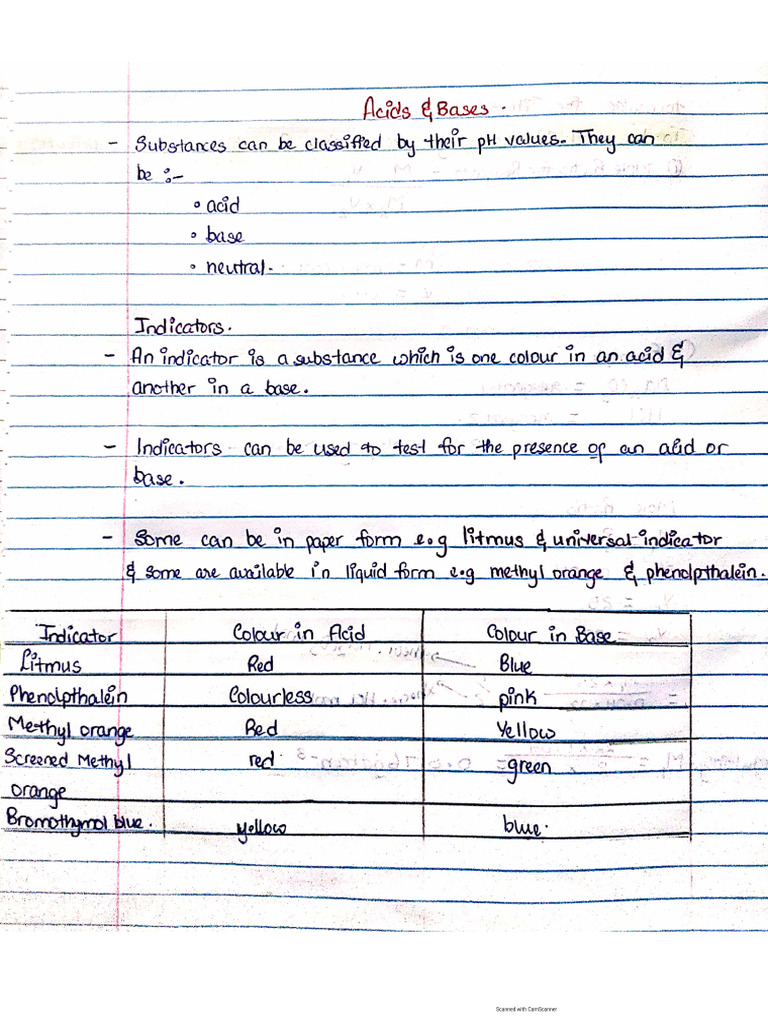 Acids & Bases.
- Substances can be classified by their pH values. They can
be :-
• acid
• base
• neutral.
Indicators.
- An indicator is a substance which is one colour in an acid &
another in a base.
- Indicators can be used to test for the presence of an acid or
base.
- Some can be in paper form e.g litmus & universal indicator
& some are available in liquid form e.g methyl orange & phenolpthalein.
Indicator Colour in Acid Colour in Base
Litmus Red Blue
Phenolpthalein Colourless pink
Methyl orange Red Yellow
Screened Methyl red green
orange
Bromothymol blue. yellow blue.
Scanned with CamScanner